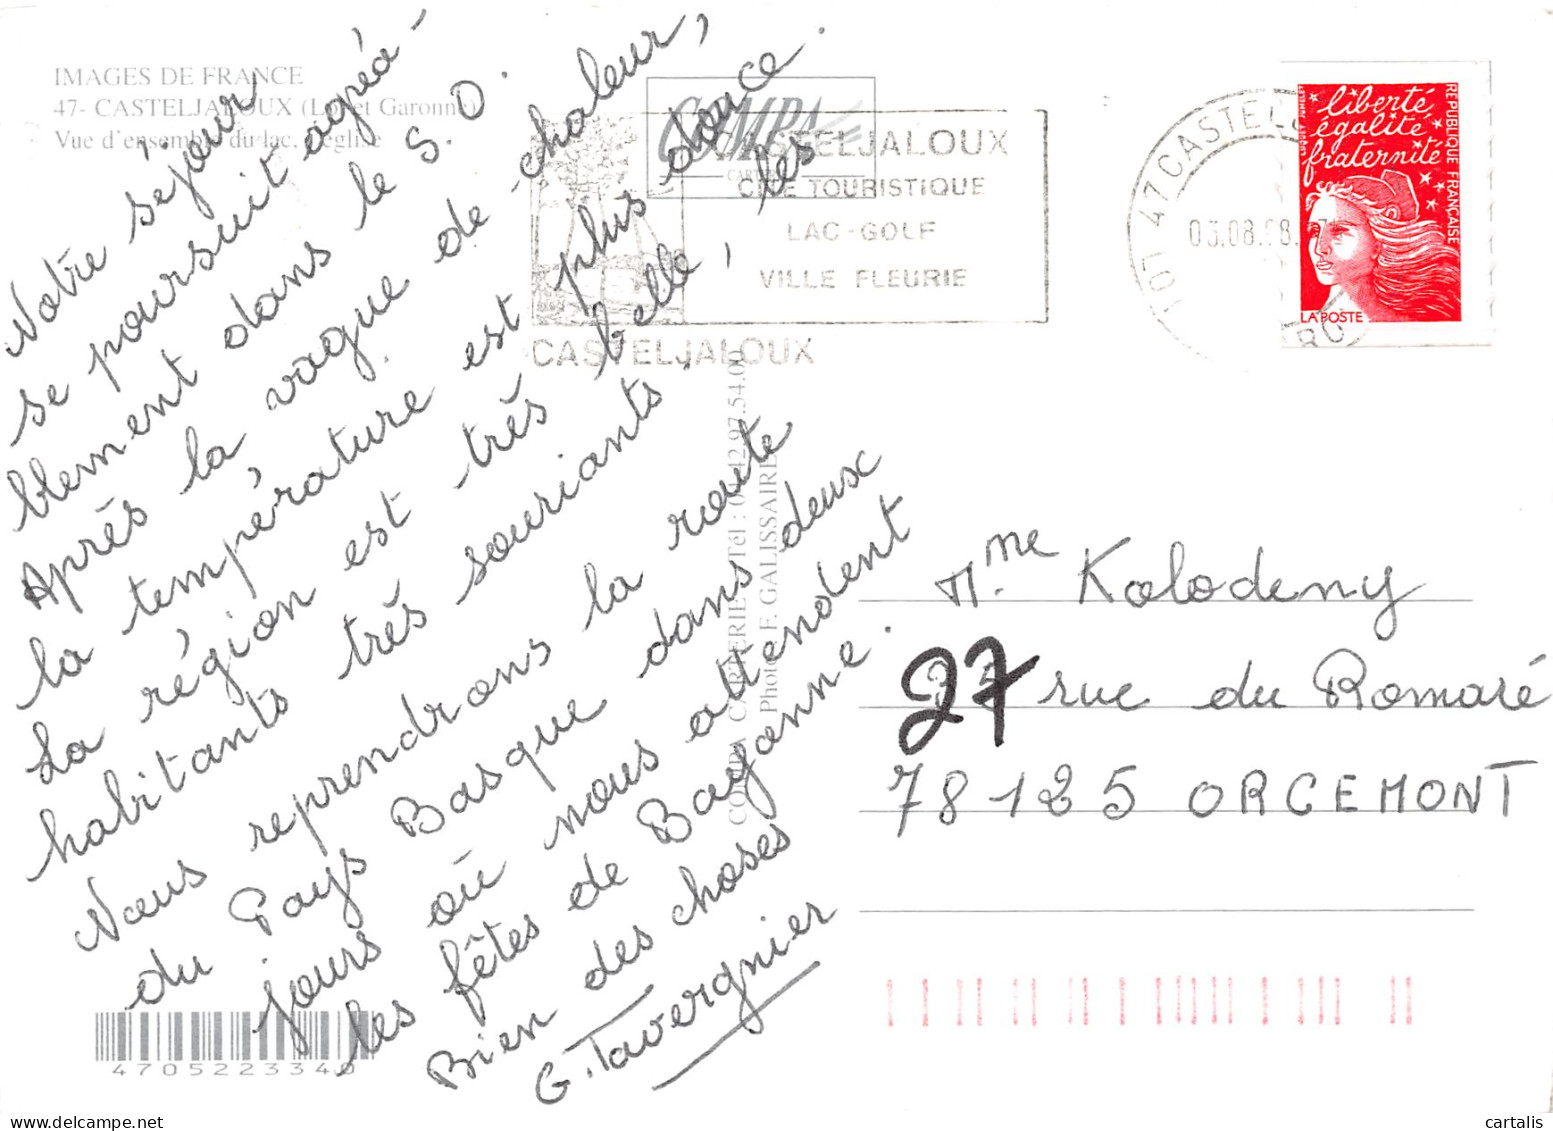 IMAGES DE FRANCE
47- CASTELJALOUX (Lot et Garonne)
Vue d'ensemble du lac. L'église
Notre séjour
se poursuit agréa-
blement dans le S.O.
Après la vague de chaleur,
la température est plus douce.
La région est très belle, les
habitants très souriants,
Nous reprendrons la route
du Pays Basque dans deux
jours où nous attendent
les fêtes de Bayonne.
Bien des choses
G. Tavergnier
CARTERIE
CASTELJALOUX
CITE TOURISTIQUE
LAC-GOLF
VILLE FLEURIE
CASTELJALOUX
47 CASTEL
03.08.98
liberté
égalité
fraternité
REPUBLIQUE FRANÇAISE
LA POSTE
CARTERIE Tél : 04.42.97.54.00
Photo F. GALISSAIRE
Mme Kolodeny
27 rue du Romaré
78125 ORCEMONT
4705223340
cartalis